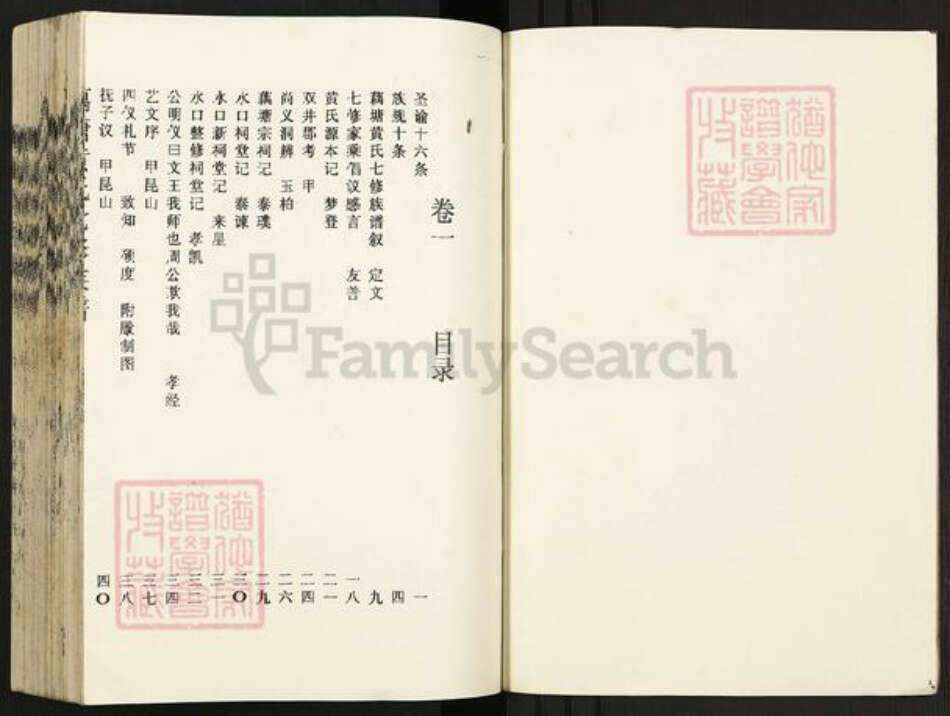 卷一 目录
圣谕十六条 一
族规十条 四
藕塘黄氏七修族谱叙 定文 九
七修家乘倡议感言 友善 一八
黄氏源本记 梦登 二一
双井郡考 甲 二四
尚义洞辨 玉柏 二六
藕塘宗祠记 泰璞 二九
水口祠堂记 泰谏 三〇
水口新祠堂记 来星 三一
水口整修祠堂记 孝凯 三二
公明仪曰文王我师也周公欺我哉 孝经 三四
艺文序 甲昆山 三七
四仪礼节 致知 三八
抚子议 甲昆山 四〇
猶他家
譜學會
收藏
猶他家
譜學會
收藏
FamilySearch